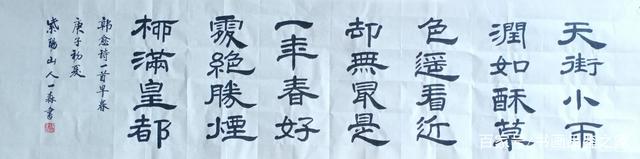 天街小雨
潤如酥草
色遥看近
却無最是
一年春好
處絕勝煙
柳滿皇都
愈詩一首早春
庚子初夏
紫陽山人一森書
百家号/书画